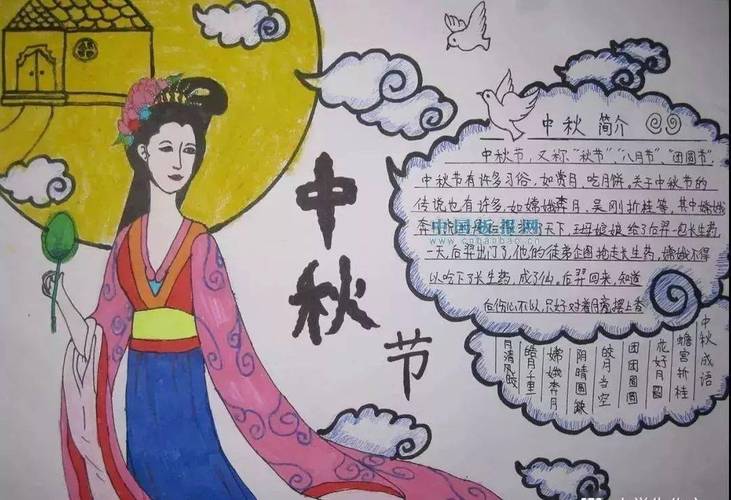 中
秋
节
中秋 简介
中秋节，又称“秋节”、“八月节”、“团圆节”
中秋节有许多习俗，如赏月、吃月饼。关于中秋节的
传说也有许多，如嫦娥奔月，吴刚折桂等。其中嫦娥
奔月 后羿 了天下，王母娘娘给了后羿一包长生药
中国板报网
一天，后羿出门了，他的徒弟企图抢走长生药，嫦娥不得
以吃下了长生药，成了仙。后羿回来，知道
后伤心不以，只好对着月亮摆上香
中秋成语
蟾宫折桂
花好月圆
团团圆圆
皎月当空
阴晴圆缺
嫦娥奔月
皓月千
月清风皎